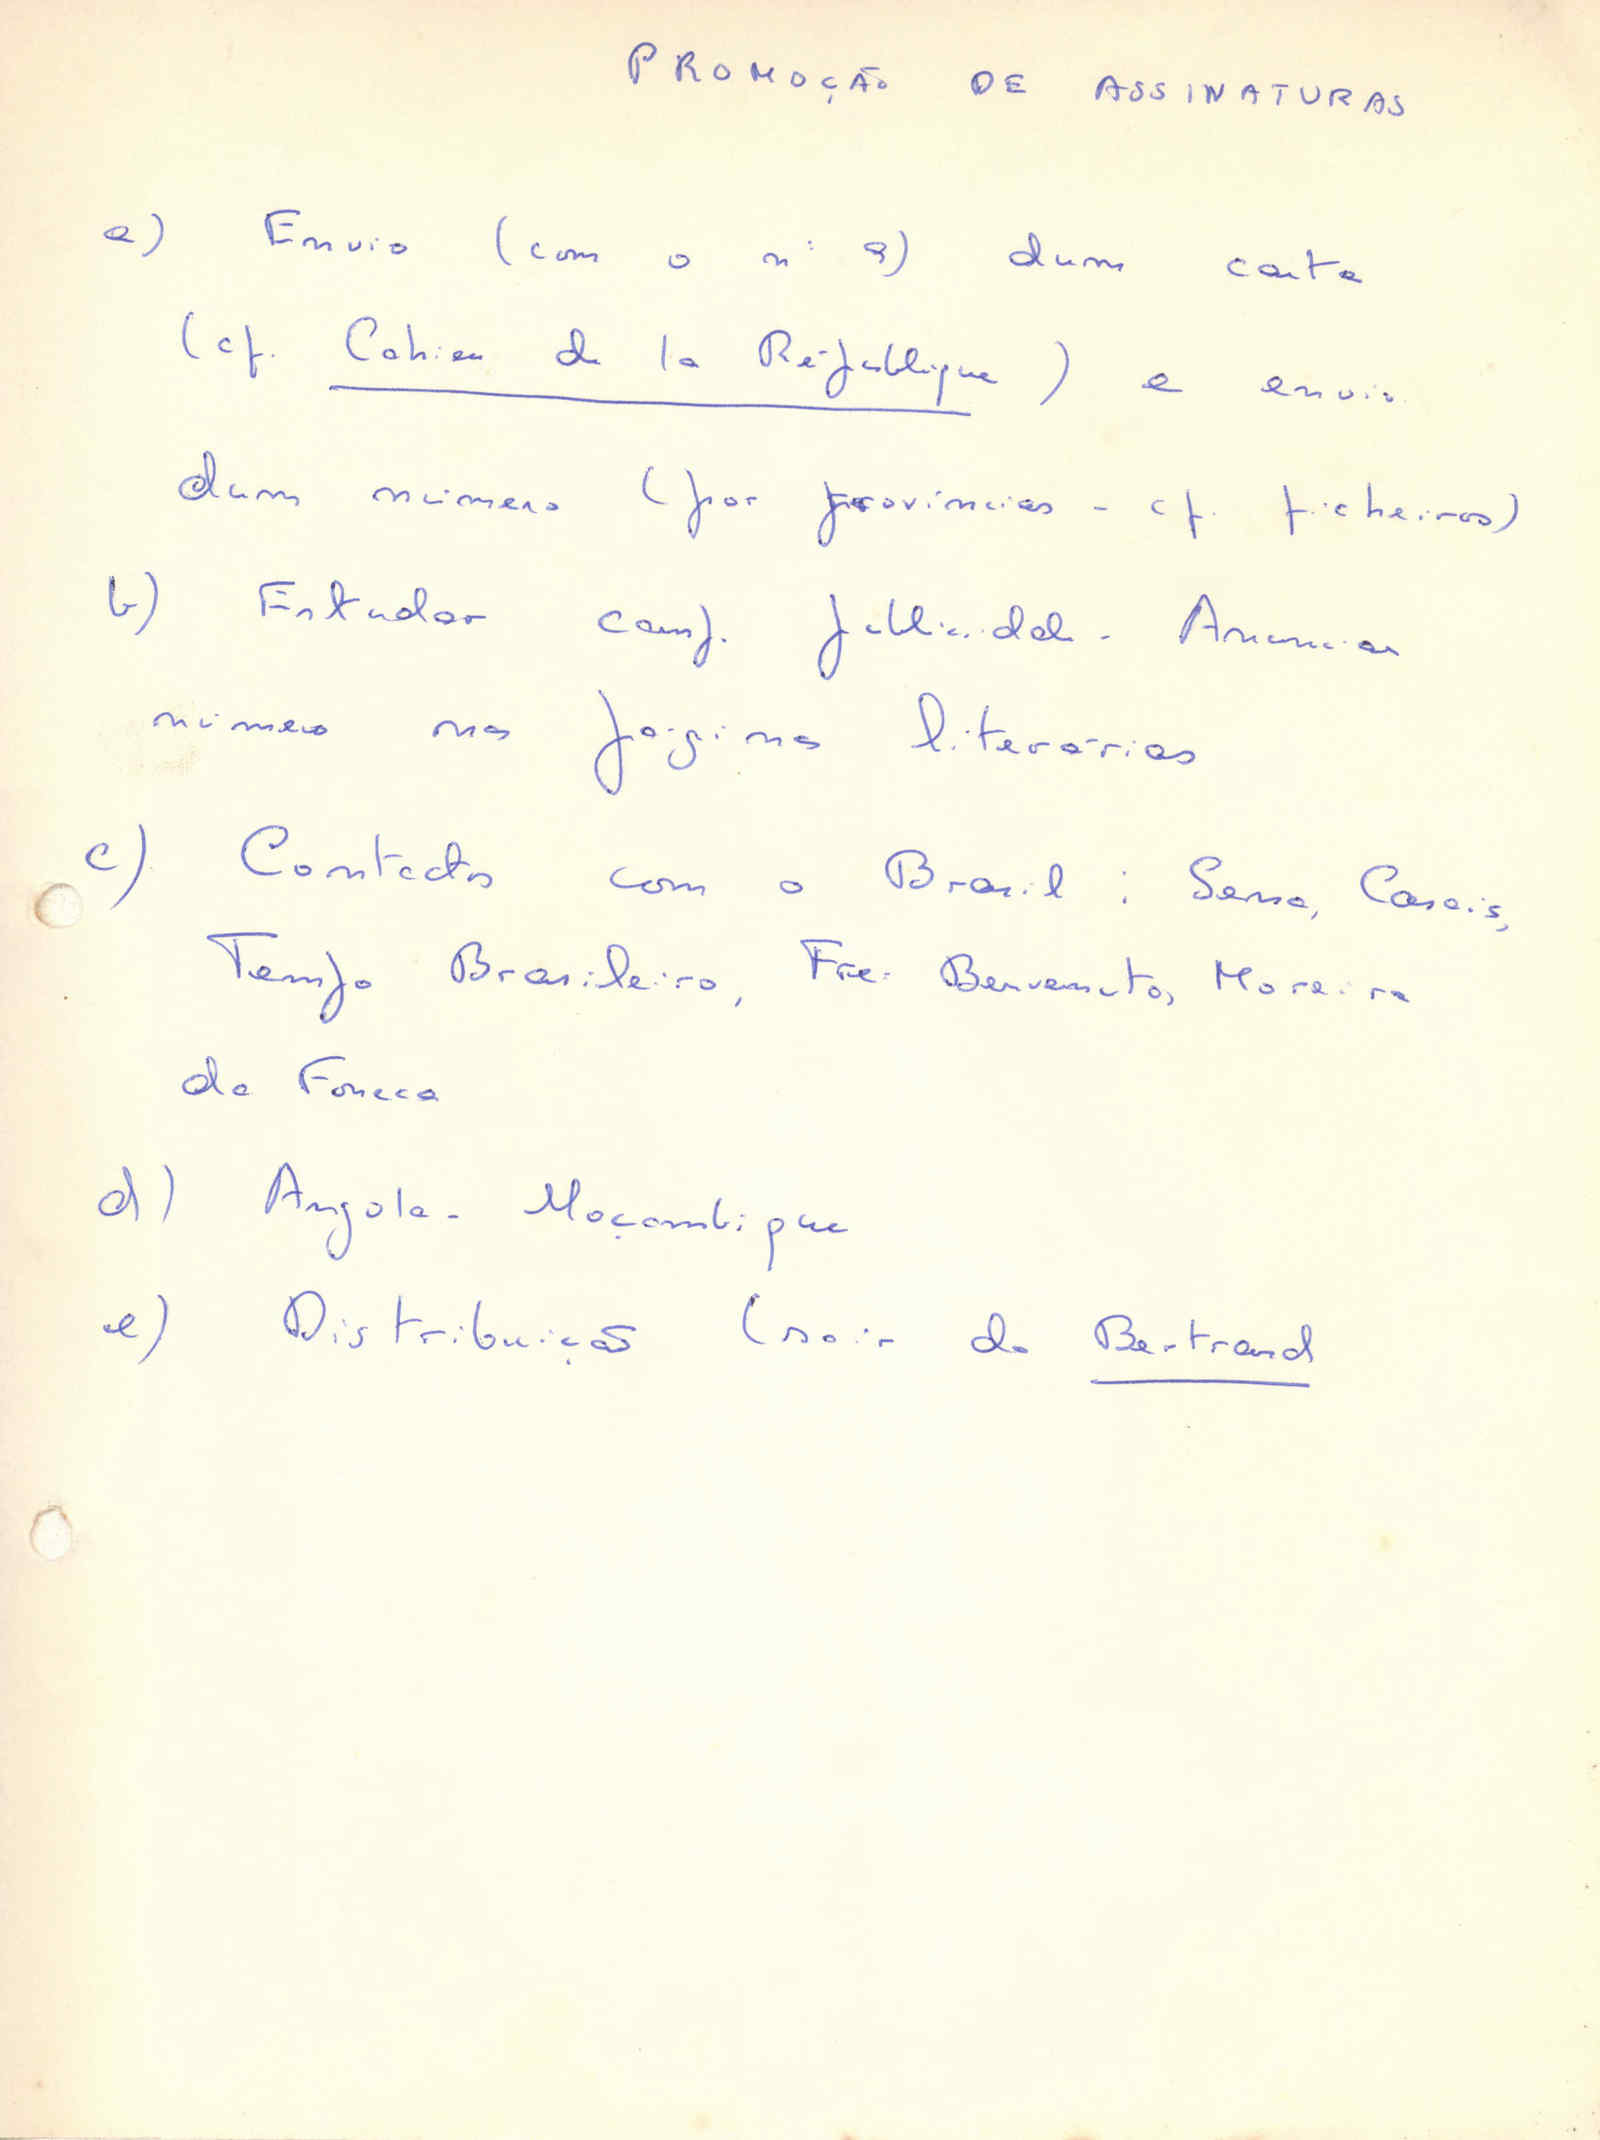 PROMOÇÃO DE ASSINATURAS
a) Envio (com o nº 9) dum carta
(cf. Cahiers de la République) e envio
dum número (por províncias - cf. ficheiros)
b) Estudar camp. publicidade - Anunciar
número nas páginas literárias
c) Contactos com o Brasil: Sena, Casais,
Tempo Brasileiro, Frei Benvenuto, Moreira
da Fonseca
d) Angola - Moçambique
e) Distribuição (sair da Bertrand